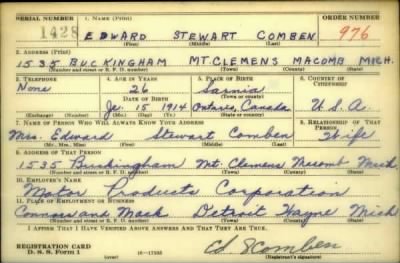 SERIAL NUMBER 1. NAME (Print) ORDER NUMBER
1428 EDWARD STEWART COMBEN 976
(First) (Middle) (Last)
2. ADDRESS (Print)
1535 BUCKINGHAM MT. CLEMENS MACOMB MICH.
(Number and street or R. F. D. number) (Town) (County) (State)
3. TELEPHONE 4. AGE IN YEARS 5. PLACE OF BIRTH 6. COUNTRY OF CITIZENSHIP
None 26 Sarnia
DATE OF BIRTH
15 1914 Ontario, Canada U.S.A.
(Exchange) (Number) (Mo.) (Day) (Yr.) (Town or county) (State or country)
7. NAME OF PERSON WHO WILL ALWAYS KNOW YOUR ADDRESS 8. RELATIONSHIP OF THAT PERSON
Mrs. Edward Stewart Comben Wife
(Mr., Mrs., Miss) (First) (Middle) (Last)
9. ADDRESS OF THAT PERSON
1535 Buckingham Mt. Clemens Macomb Mich
(Number and street or R. F. D. number) (Town) (County) (State)
10. EMPLOYER'S NAME
Motor Products Corporation
11. PLACE OF EMPLOYMENT OR BUSINESS
Connors and Mack Detroit Wayne Mich
(Number and street or R. F. D. number) (Town) (County) (State)
I AFFIRM THAT I HAVE VERIFIED ABOVE ANSWERS AND THAT THEY ARE TRUE.
REGISTRATION CARD
D. S. S. Form 1 (over) 16—17105 Ed S Comben
(Registrant's signature)